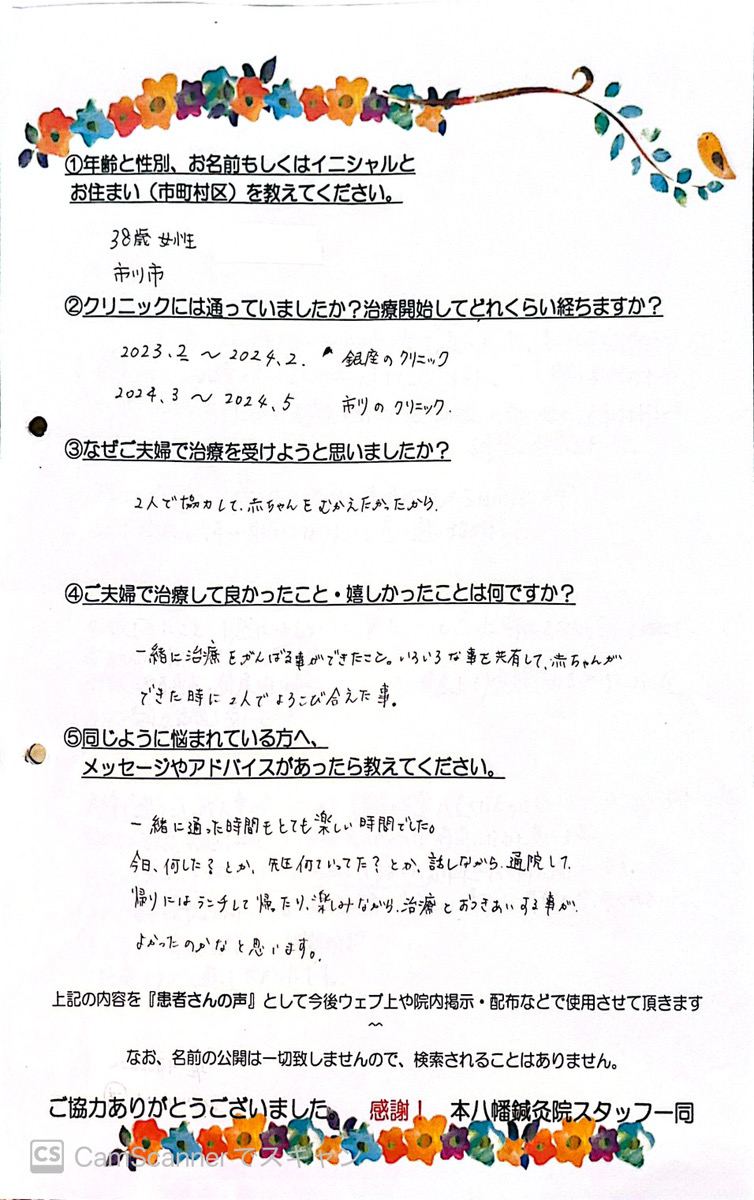 ①年齢と性別、お名前もしくはイニシャルと
お住まい（市町村区）を教えてください。
38歳 女性
市川市
②クリニックには通っていましたか？治療開始してどれくらい経ちますか？
2023.2 〜 2024.2. 銀座のクリニック
2024.3 〜 2024.5 市川のクリニック.
③なぜご夫婦で治療を受けようと思いましたか？
2人で協力して、赤ちゃんをむかえたかったから.
④ご夫婦で治療して良かったこと・嬉しかったことは何ですか？
一緒に治療をがんばる事ができたこと。いろいろな事を共有して、赤ちゃんが
できた時に2人でよろこび合えた事。
⑤同じように悩まれている方へ、
メッセージやアドバイスがあったら教えてください。
一緒に通った時間もとても楽しい時間でした。
今日、何した？とか、先生何ていってた？とか、話しながら、通院して、
帰りにはランチして帰ったり、楽しみながら、治療とおつきあいする事が、
よかったのかなと思います。
上記の内容を『患者さんの声』として今後ウェブ上や院内掲示・配布などで使用させて頂きます
～
なお、名前の公開は一切致しませんので、検索されることはありません。
ご協力ありがとうございました。 感謝！ 本八幡鍼灸院スタッフ一同
CS CamScannerでスキャン